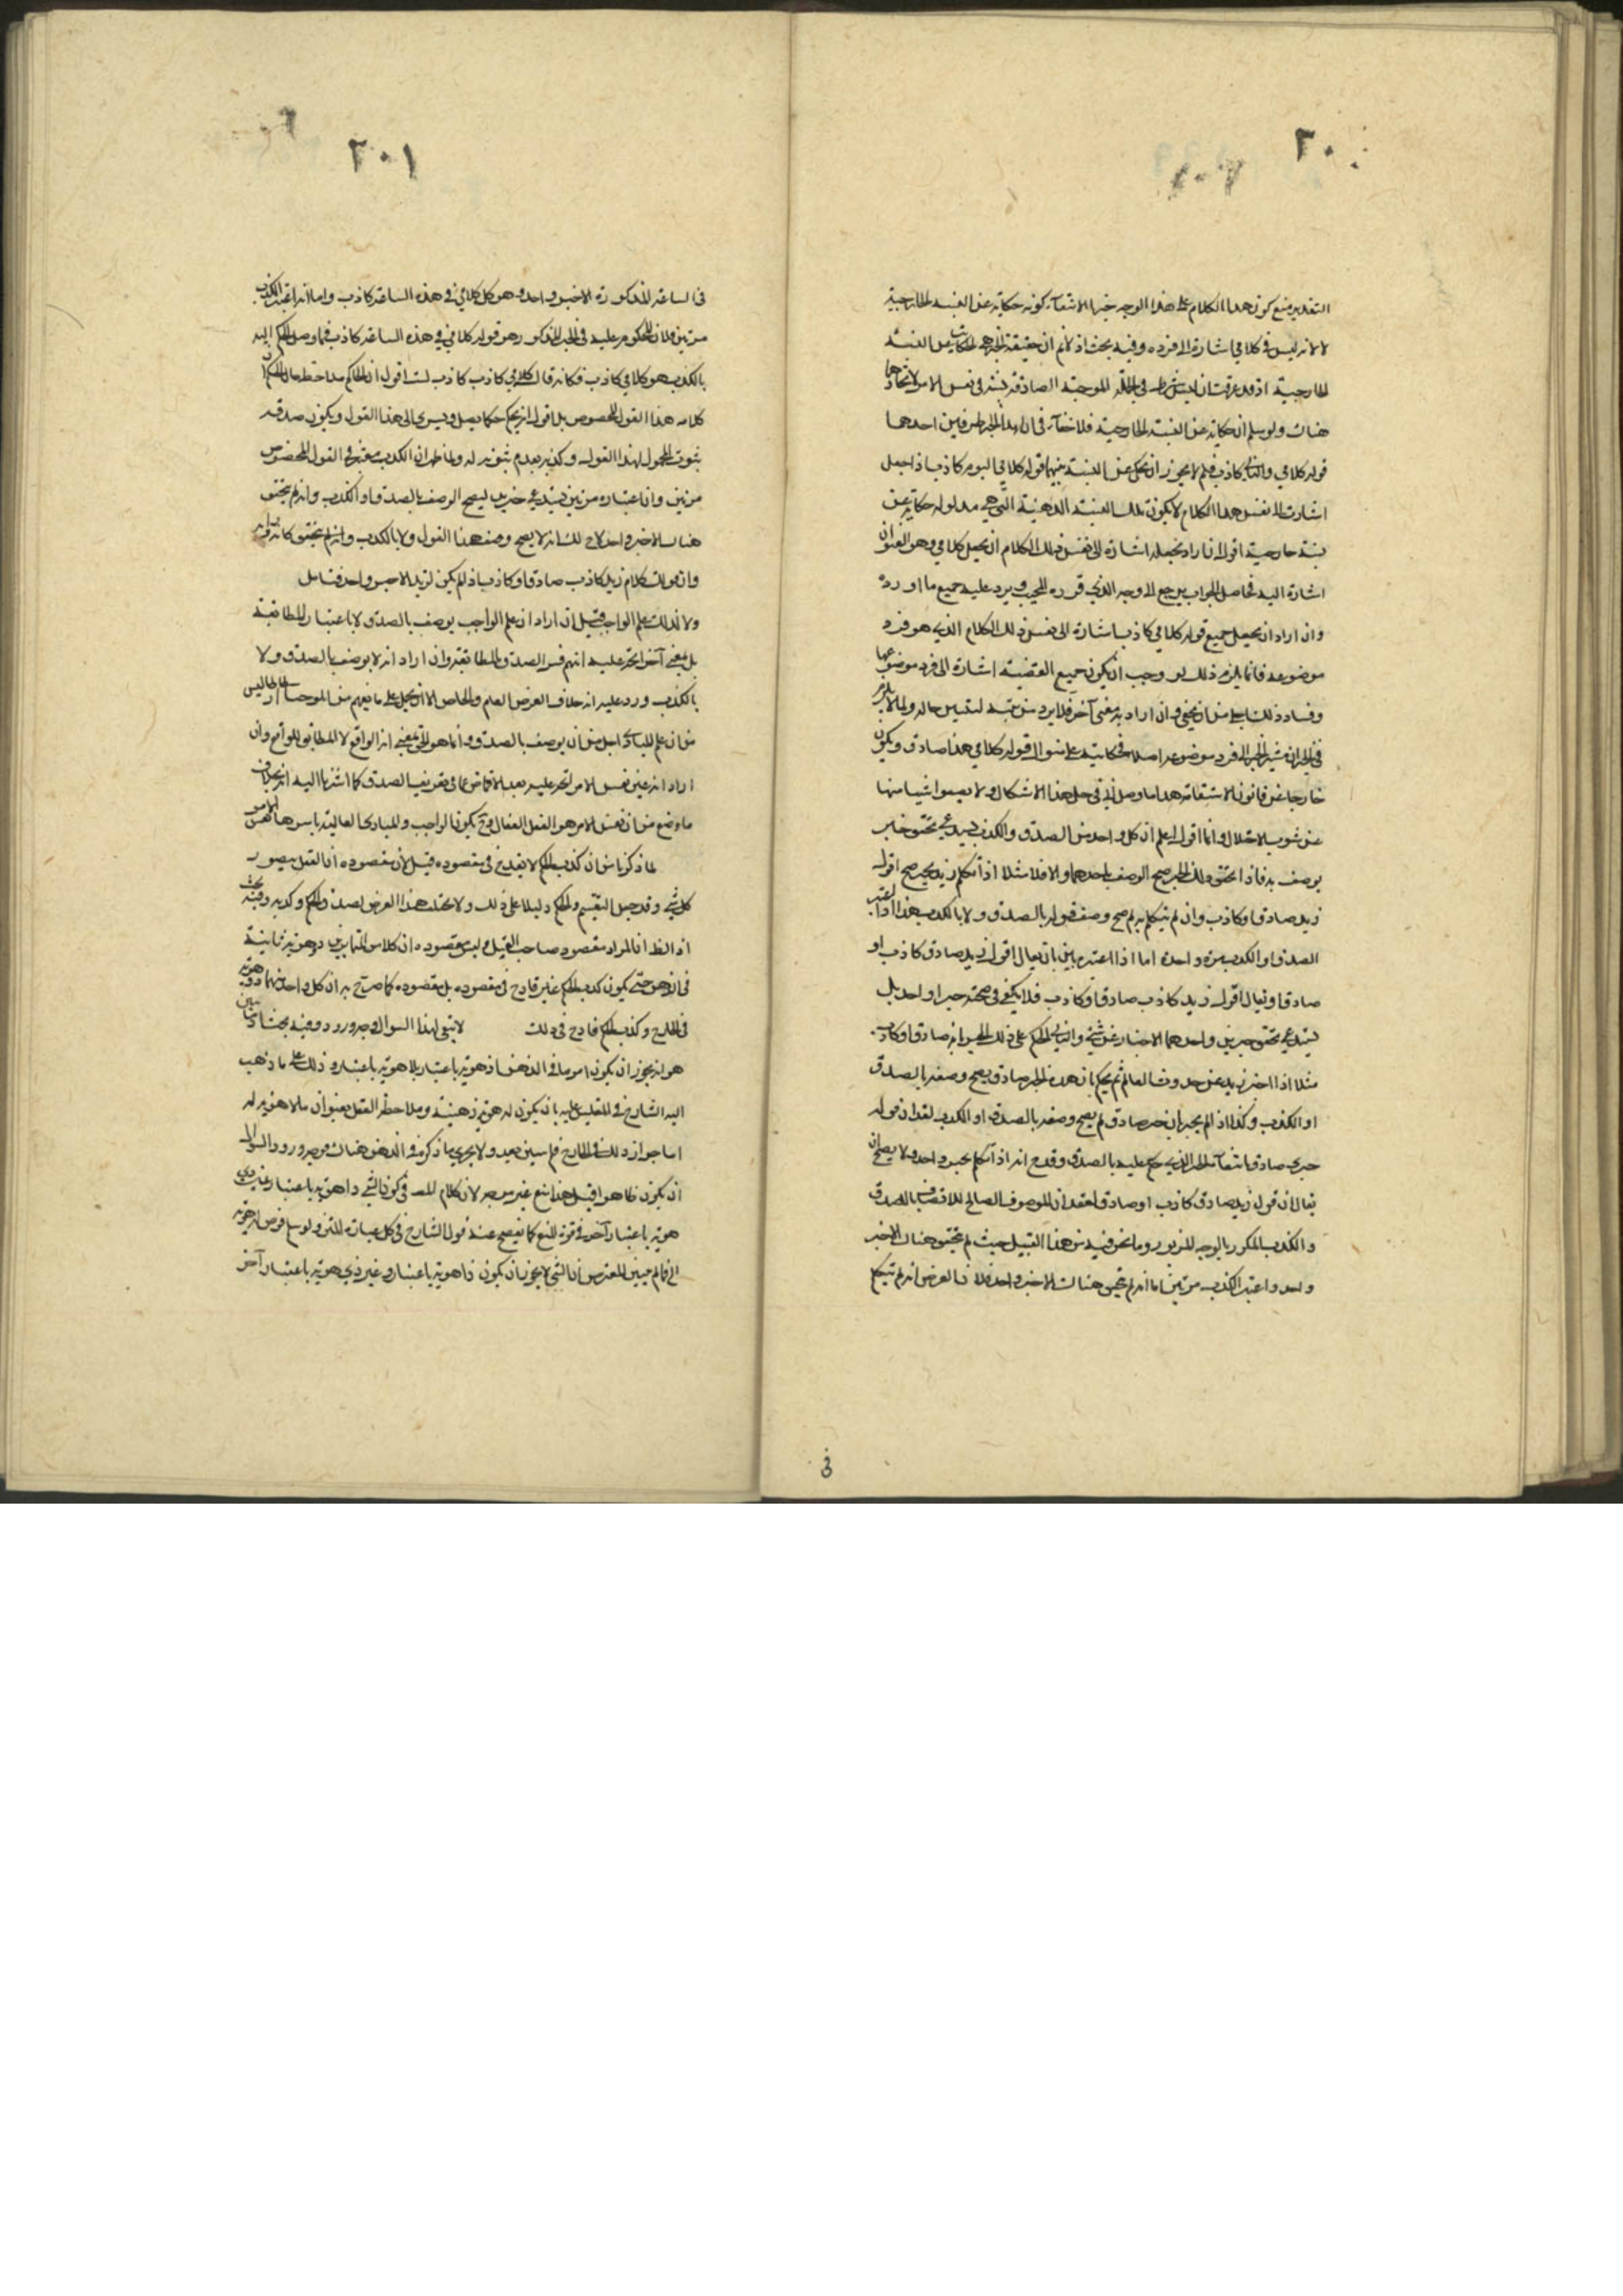 ٢٠٠
التقدير منع كون هذا الكلام على هذا الوجه خبرا لانتفاء كونه حكاية عن النسبة الخارجية
لا لانه ليس في كلامي اشارة الى فرده وفيه بحث اذ لا نم ان حقيقة الخبر هي الحكاية عن النسبة
الخارجية اذ قد عرفت ان ليس في الموجبة الصادقة نسبة في نفس الامر لاتحادهما
هناك ولو سلم ان حكاية عن النسبة الخارجية فلا خفاء في ان لهذا الخبر طرفين احدهما
قوله كلامي والثاني كاذب فلم لا يجوز ان يحكى عن النسبة بينهما قوله كلامي اليوم كاذب اذا جعل
اشارت الى نفس هذا الكلام لا يكون تلك النسبة الذهنية التي هي مدلوله حكاية عن
نسبة خارجية اقول ان اراد بجعله اشارة الى نفس ذلك الكلام ان يجعل كلامي وهو العنوان
اشارة اليه فحاصل الجواب يرجع الى الوجه الذي قرره المجيب ويرد عليه جميع ما اورده
وان اراد ان يجعل جميع قوله كلامي كاذب اشارة الى نفس ذلك الكلام الذي هو فرد
موضوعه فانما يلزم ذلك لو وجب ان يكون جميع القضية اشارة الى فرد موضوعها
وفساد ذلك اجلى من ان يخفى وان اراد به معنى آخر فلا بد من تبيينه ليتبين حاله
في الخبر ان يشير الخبر الى فرد موضوعه اصلا قوله كلامي هذا صادق ويكون
خارجا عن قانون الاشتقاق هذا ما وصل الي في حل هذا الاشكال ولا يصفو شيء منها
عن شوب الاختلال وانا اقول اعلم ان كل واحد من الصدق والكذب يستدعي تحقق خبر
يوصف به فاذا تحقق ذلك الخبر صح الوصف باحدهما والا فلا مثلا اذا تكلم زيد بخبر صح اقول
زيد صادق او كاذب وان لم يتكلم به لم يصح وصف قوله بالصدق ولا بالكذب هذا اذا اعتبر
الصدق او الكذب مرة واحدة اما اذا اعتبر مرتين بان يقال اقول زيد صادق كاذب او
صادق او يقال اقول زيد كاذب صادق او كاذب فلا يكفي في صحته خبر واحد بل
يستدعي تحقق خبرين واحدهما الاخبار عن شيء والثاني الحكم على ذلك الخبر انه صادق او كاذب
مثلا اذا اخبر زيد عن حدوث العالم ثم يحكم بان هذا الخبر صادق يصح وصفه بالصدق
او الكذب وكذا اذا لم يخبر بان خبره صادق لم يصح وصفه بالصدق او الكذب لفقدان قوله
خبري صادق انتفاء الخبر الذي حكم عليه بالصدق وقد ح انه اذا تكلم بخبر واحد ولا يصح ان
يقال ان قول زيد صادق كاذب او صادق لفقد ان الموصوف الصالح للاتصاف بالصدق
والكذب المكرر بالوجه المزبور وما نحن فيه من هذا القبيل حيث لم يتحقق هناك الا خبر
واحد واعتبر الكذب مرتين اما انه لم يتحقق هناك الا خبر واحد فلان الغرض انه لم يتكلم
في
٢٠١
في الساعة المذكورة الا بخبر واحد وهو كل كلامي في هذه الساعة كاذب واما انه اعتبر الكذب
مرتين فلان المحكوم عليه في الخبر المذكور وهو قوله كلامي في هذه الساعة كاذب فما وصل الحكم اليه
بالكذب هو كلامي كاذب فكانه قال كلامي كاذب كاذب لست اقول ان الحاكم يلاحظ حال الحكم ان
كلامه هذا القول المخصوص بل اقول انه يحكم حكما يصل ويسري الى هذا القول ويكون صدقه
بثبوت المحمول لهذا القول وكذبه بعدم ثبوته له ولما ظهر ان الكذب معتبر في القول المخصوص
مرتين وان اعتباره مرتين يستدعي خبرين ليصح الوصف بالصدق او الكذب وانه لم يتحقق
هناك الا خبر واحد لاح لك انه لا يصح وصف هذا القول ولا بالكذب
وان قولك كلام زيد كاذب صادق او كاذب اذ لم يكن لزيد الا خبر واحد فتامل
ولا كذلك علم الواجب قيل ان اراد ان علم الواجب يوصف بالصدق لا باعتبار المطابقة
بل بمعنى آخر اتجه عليه انهم فسروا الصدق بالمطابقة وان اراد انه لا يوصف بالصدق ولا
بالكذب ورد عليه انه خلاف العرض العام والخاص الا ان يحمل على ما يفهم من
من ان علم المبادي اجل من ان يوصف بالصدق وانما هو الحق بمعنى انه الواقع لا المطابق للواقع وان
اراد انه عين نفس الامر اتجه عليه بعد الاغماض عما في تعريف الصدق كما اشرنا اليه انه بخلاف
ما وضع من ان نفس الامر هو العقل الفعال وح يكون الواجب والمبادي العالية باسرها نفس الامر
لما ذكرنا من ان كذب الحكم لا يقدح في مقصوده قيل لان مقصوده ان العقل يتصور
كل شيء وقد جعل التقسيم والحكم دليلا على ذلك ولا يختلف هذا الغرض لصدق الحكم وكذبه وفيه بحث
اذ الظ ان المراد مقصود صاحب القيل وليس مقصوده ان كلا من المتمايزين ذو هوية ثابتة
في الذهن حتى يكون كذب الحكم غير قادح في مقصوده بل مقصوده كما صرح به ان كل واحد منهما ذو هوية
في الخارج وكذب الحكم قادح في ذلك لا يتجه لهذا السؤال وجه ورود وفيه بحث
هو انه يجوز ان يكون امر ما في الذهن ذا هوية باعتبار بلا هوية باعتبار وذلك على ما ذهب
اليه الشارح في المقيس عليه بان يكون له هوية ذهنية وملاحظة العقل بعنوان ما لا هوية له
اما جواز ذلك في الخارج فلم يبين بعد ولا يجري ما ذكره في الذهن هناك فوجه ورود السؤال
ان يكون ظاهرا قيل هذا منع غير موجه لان كلام المصـ في كون الشيء ذا هوية باعتبار غير ذي
هوية باعتبار آخر في قوة المنع كما يفصح عنه قول الشارح في كل عبارة المتن ولو سلم فرض له هوية
الخ فما لم يبين المعترض ان الشيء لا يجوز ان يكون ذا هوية باعتبار وغير ذي هوية باعتبار آخر